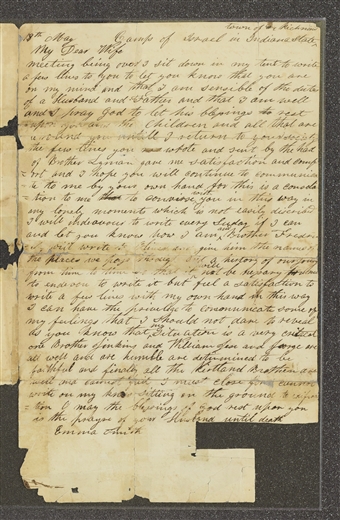 town of Richmon
18th May Camp of Israel in Indiana State
My Dear Wife
meeting being over I sit down in my tent to write
a few lines to you to let you know that you are
on my mind and that I am sensible of the duties
of a Husband and Father and that I am well
and I pray God to let his blessings to rest
upon you and the Children and all that are
around you untill I return to your society
the few lines you wrote and sent by the hand
of Brother Lyman gave me satisfaction and comf
ort and I hope you will continue to communica
te to me by your own hand for this is a consola
tion to me to convirse with you in this way in
my lonely moments which is not easily discribed
I will indeavour to write every day if I can
and let you know how I am and Brother Frederic
will write and give him the names of
the places we pass through and a history of our jorny
from time to time so that it not be necesary for me
to endeaver to write it but feel a satisfaction to
write a few lines with my own hand in this way
I can have the privelege to communicate some of
my feelings that I should not dare to reveal
as you know that my situation is a very critical
one Brother Jinkins and William Jese and George are
all well and are humble are determined to be
faithful and finally all the Kirtland Brotheren are
well and cannot fail I must close for I cannot
write on my knees sitting on the ground to
edification O may the blessings of God rest upon you
is the prayre of your Husband until death
Emma Smith